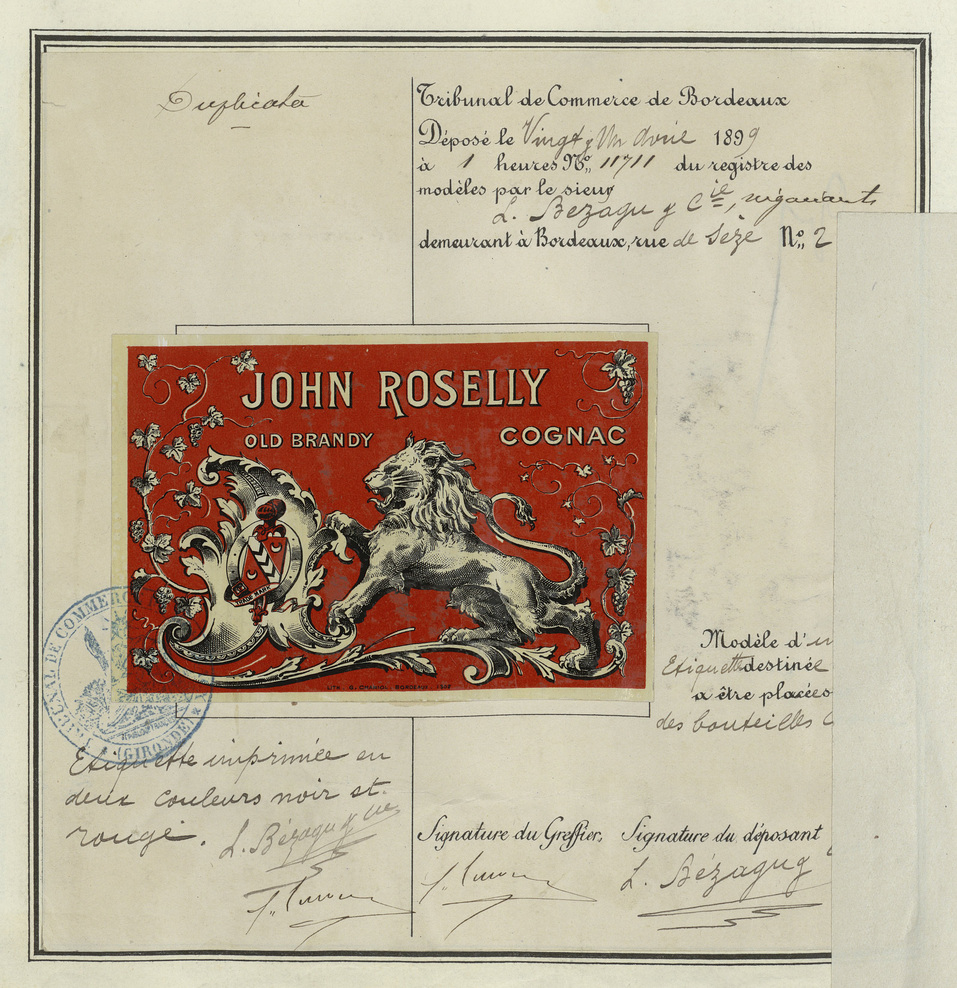 Duplicata
Tribunal de Commerce de Bordeaux
Déposé le Vingt y Un Avril 1899
à 1 heures No. 11711 du registre des
modèles par le sieur
L. Bézagu y Cie, négociants
demeurant à Bordeaux, rue de Sèze No. 2
JOHN ROSELLY
OLD BRANDY
COGNAC
TRADE MARK
LITH. BORDEAUX
TRIBUNAL DE COMMERCE
(GIRONDE)
Modèle d'un
Etiquette destinée
a être placées
des bouteilles
Etiquette imprimée en
deux couleurs noir et
rouge.
L. Bézagu y Cie
Signature du Greffier,
Signature du déposant
L. Bézagu y